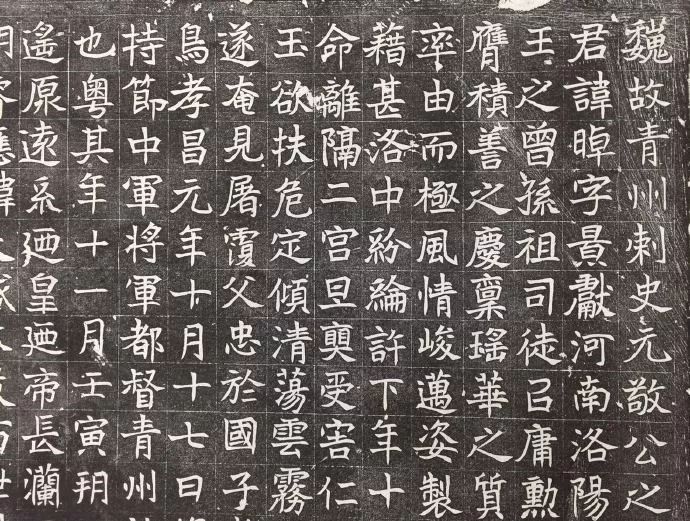 魏故青州刺史元敬公之
君諱晫字景獻河南洛陽
王之曾孫祖司徒召庸勳
膺積善之慶稟瑤華之質
率由而極風情峻邁姿製
藉甚洛中紛綸許下年十
命離隔二宮旦奭受害仁
玉欲扶危定傾清蕩雲霧
遂奄見屠覆父忠於國子
鳥孝昌元年十月十七日
持節中軍將軍都督青州
也粵其年十一月壬寅朔
遙原遠系迺皇迺帝長瀾